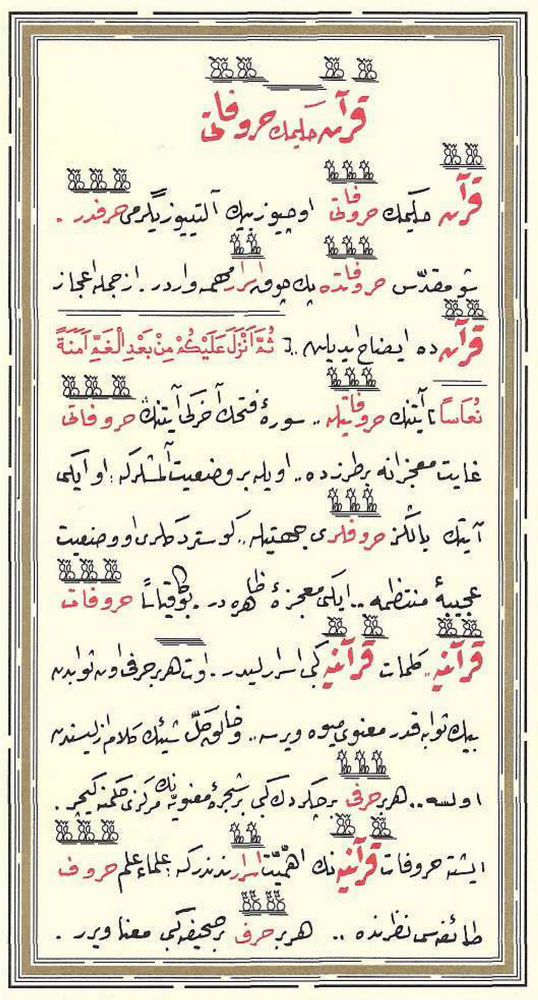 قرآن حكيمك حروفاتى
قرآن حكيمك حروفاتى اوچيوز بيك آلتييوز يگرمى حرفدر .
شو مقدّس حروفاتده پك چوق اسرار مهمه واردر . ازجمله اعجاز
قرآن ده ايضاح ايديلن ثُمَّ اَنْزَلَ عَلَيْكُمْ مِنْ بَعْدِ الْغَمِّ اَمَنَةً
نُعَاسًا تا آيتنك حروفاتيله .. سورۀ فتحك آخركى آيتنڭ حروفاتى
غايت معجزانه بر طرزده .. اويله بر وضعيت آلمشلركه : او ايكى
آيتك يالكز حروفلرى جهتيله .. كوستردكلرى او وضعيت
عجيبۀ منتظمه .. ايكى معجزۀ ظاهره در . بوكا قياسًا حروفات
قرآنيه .. كلمات قرآنيه كبى اسرارليدر . اوت هر بر حرفى اون ثوابدن
بيك ثوابه قدر معنوى ميوه ويرسه .. و خالق كلّ شيئك كلام ازليسندن
اولسه .. هر بر حرفى بر چكردك كبى بر شجرۀ معنويه نك مركزى حكمنه كچر .
ايشته حروفات قرآنيه نك اهمّيت اسرارندندركه : علماء علم حروف
طائفه سى نظرنده .. هر بر حرف بر صحيفه كبى معنا ويرر .